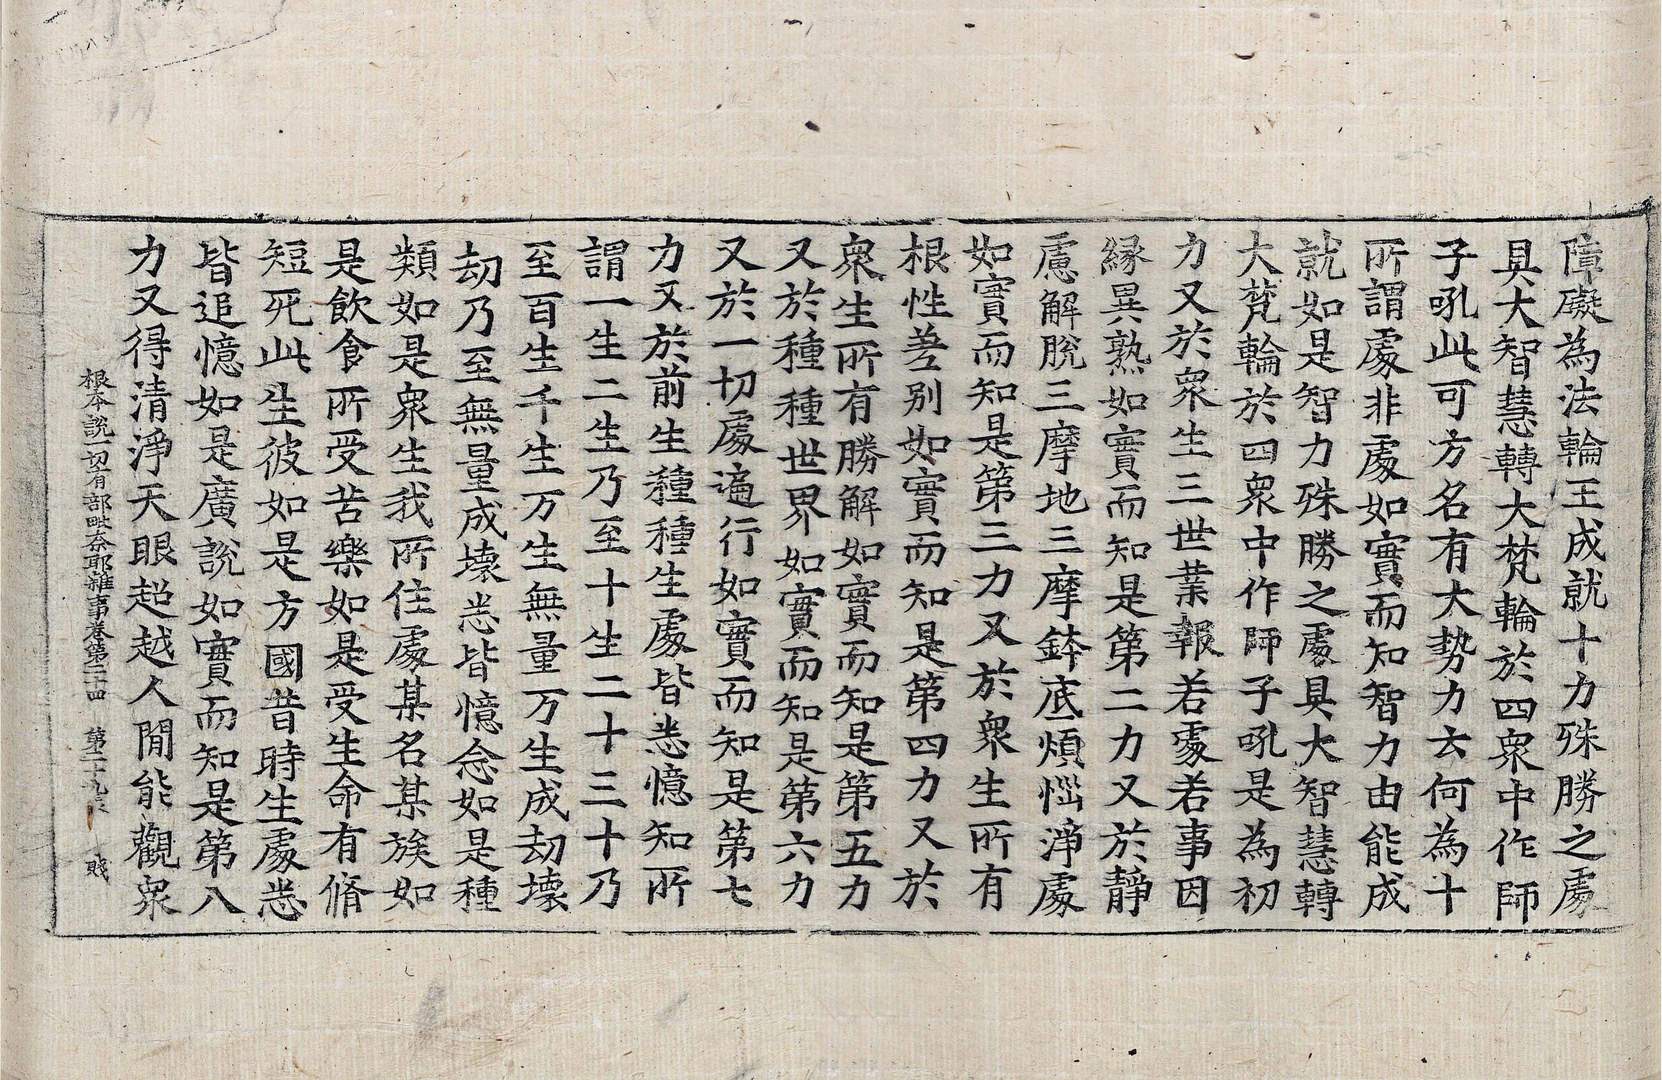 障礙為法輪王成就十力殊勝之處
具大智慧轉大梵輪於四衆中作師
子吼此可方名有大勢力云何為十
所謂處非處如實而知智力由能成
就如是智力殊勝之處具大智慧轉
大梵輪於四衆中作師子吼是為初
力又於衆生三世業報若處若事因
緣異熟如實而知是第二力又於靜
慮解脫三摩地三摩鉢底煩惱淨處
如實而知是第三力又於衆生所有
根性差别如實而知是第四力又於
衆生所有勝解如實而知是第五力
又於種種世界如實而知是第六力
又於一切處遍行如實而知是第七
力又於前生種種生處皆悉憶知所
謂一生二生乃至十生二十三十乃
至百生千生万生無量万生成劫壞
劫乃至無量成壞悉皆憶念如是種
類如是衆生我所住處某名某族如
是飲食所受苦樂如是受生命有脩
短死此生彼如是方國昔時生處悉
皆追憶如是廣說如實而知是第八
力又得清淨天眼超越人閒能觀衆
根本說一切有部毗奈耶雜事卷第三十四 第二十九張 賤